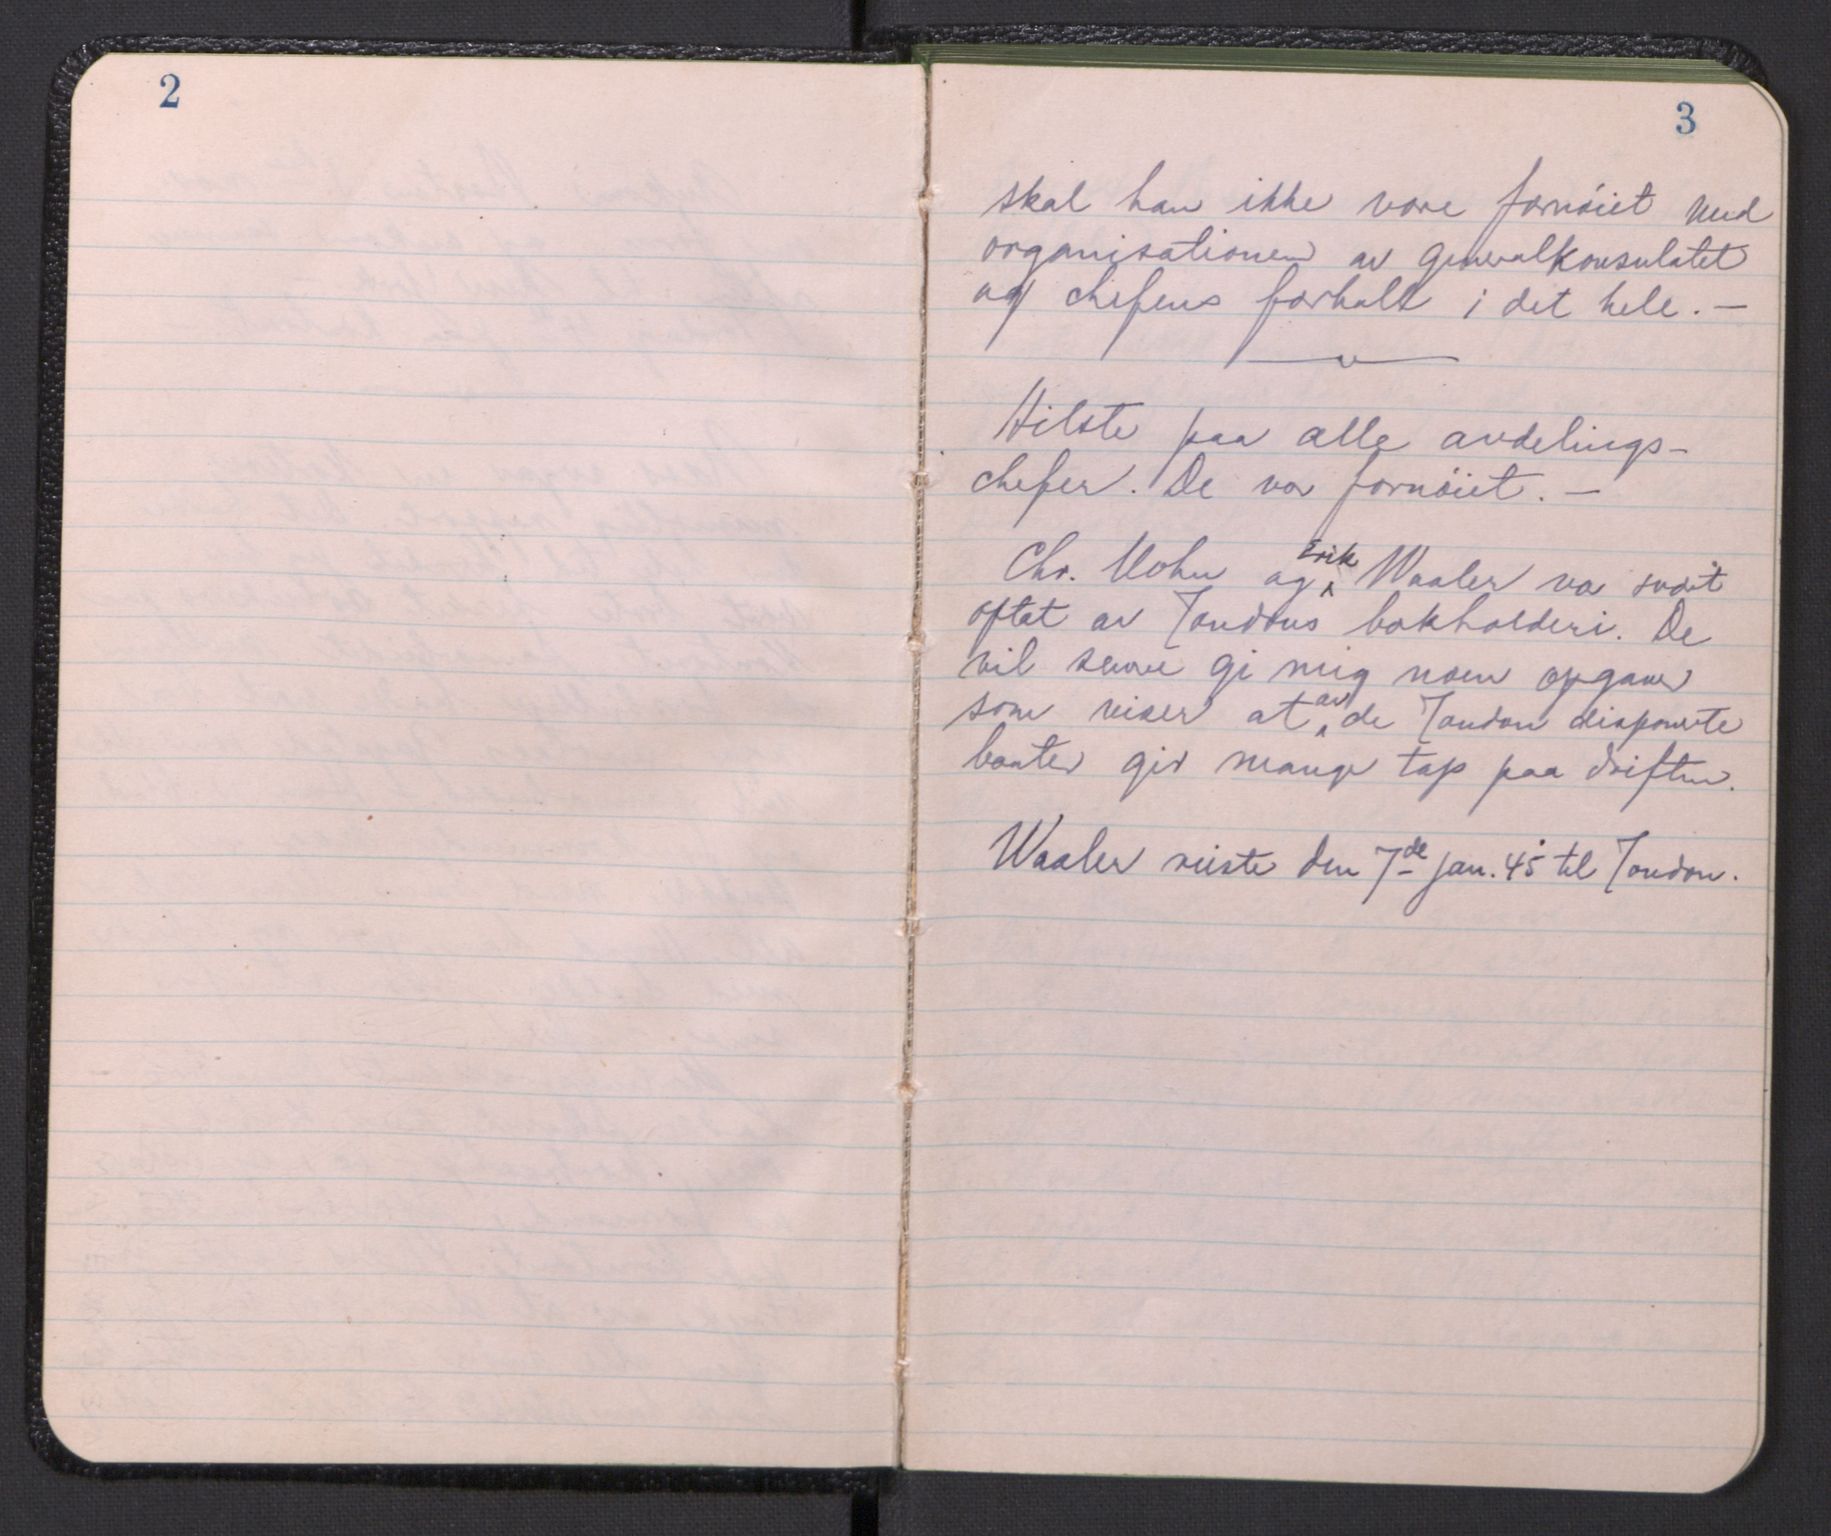 2
3
skal han ikke være fornøiet med
organisationen av Generalkonsulatet
og chefens forhold i det hele. —
Hilste paa alle avdelings-
chefer. De var fornøiet. —
Chr. Mohn og Erik Waaler var svært
optat av Londons bokholderi. De
vil senere gi mig noen opgaver
som viser at av de London disponerte
baater gir mange tap paa driften.
Waaler reiste den 7de jan. 45 til London.